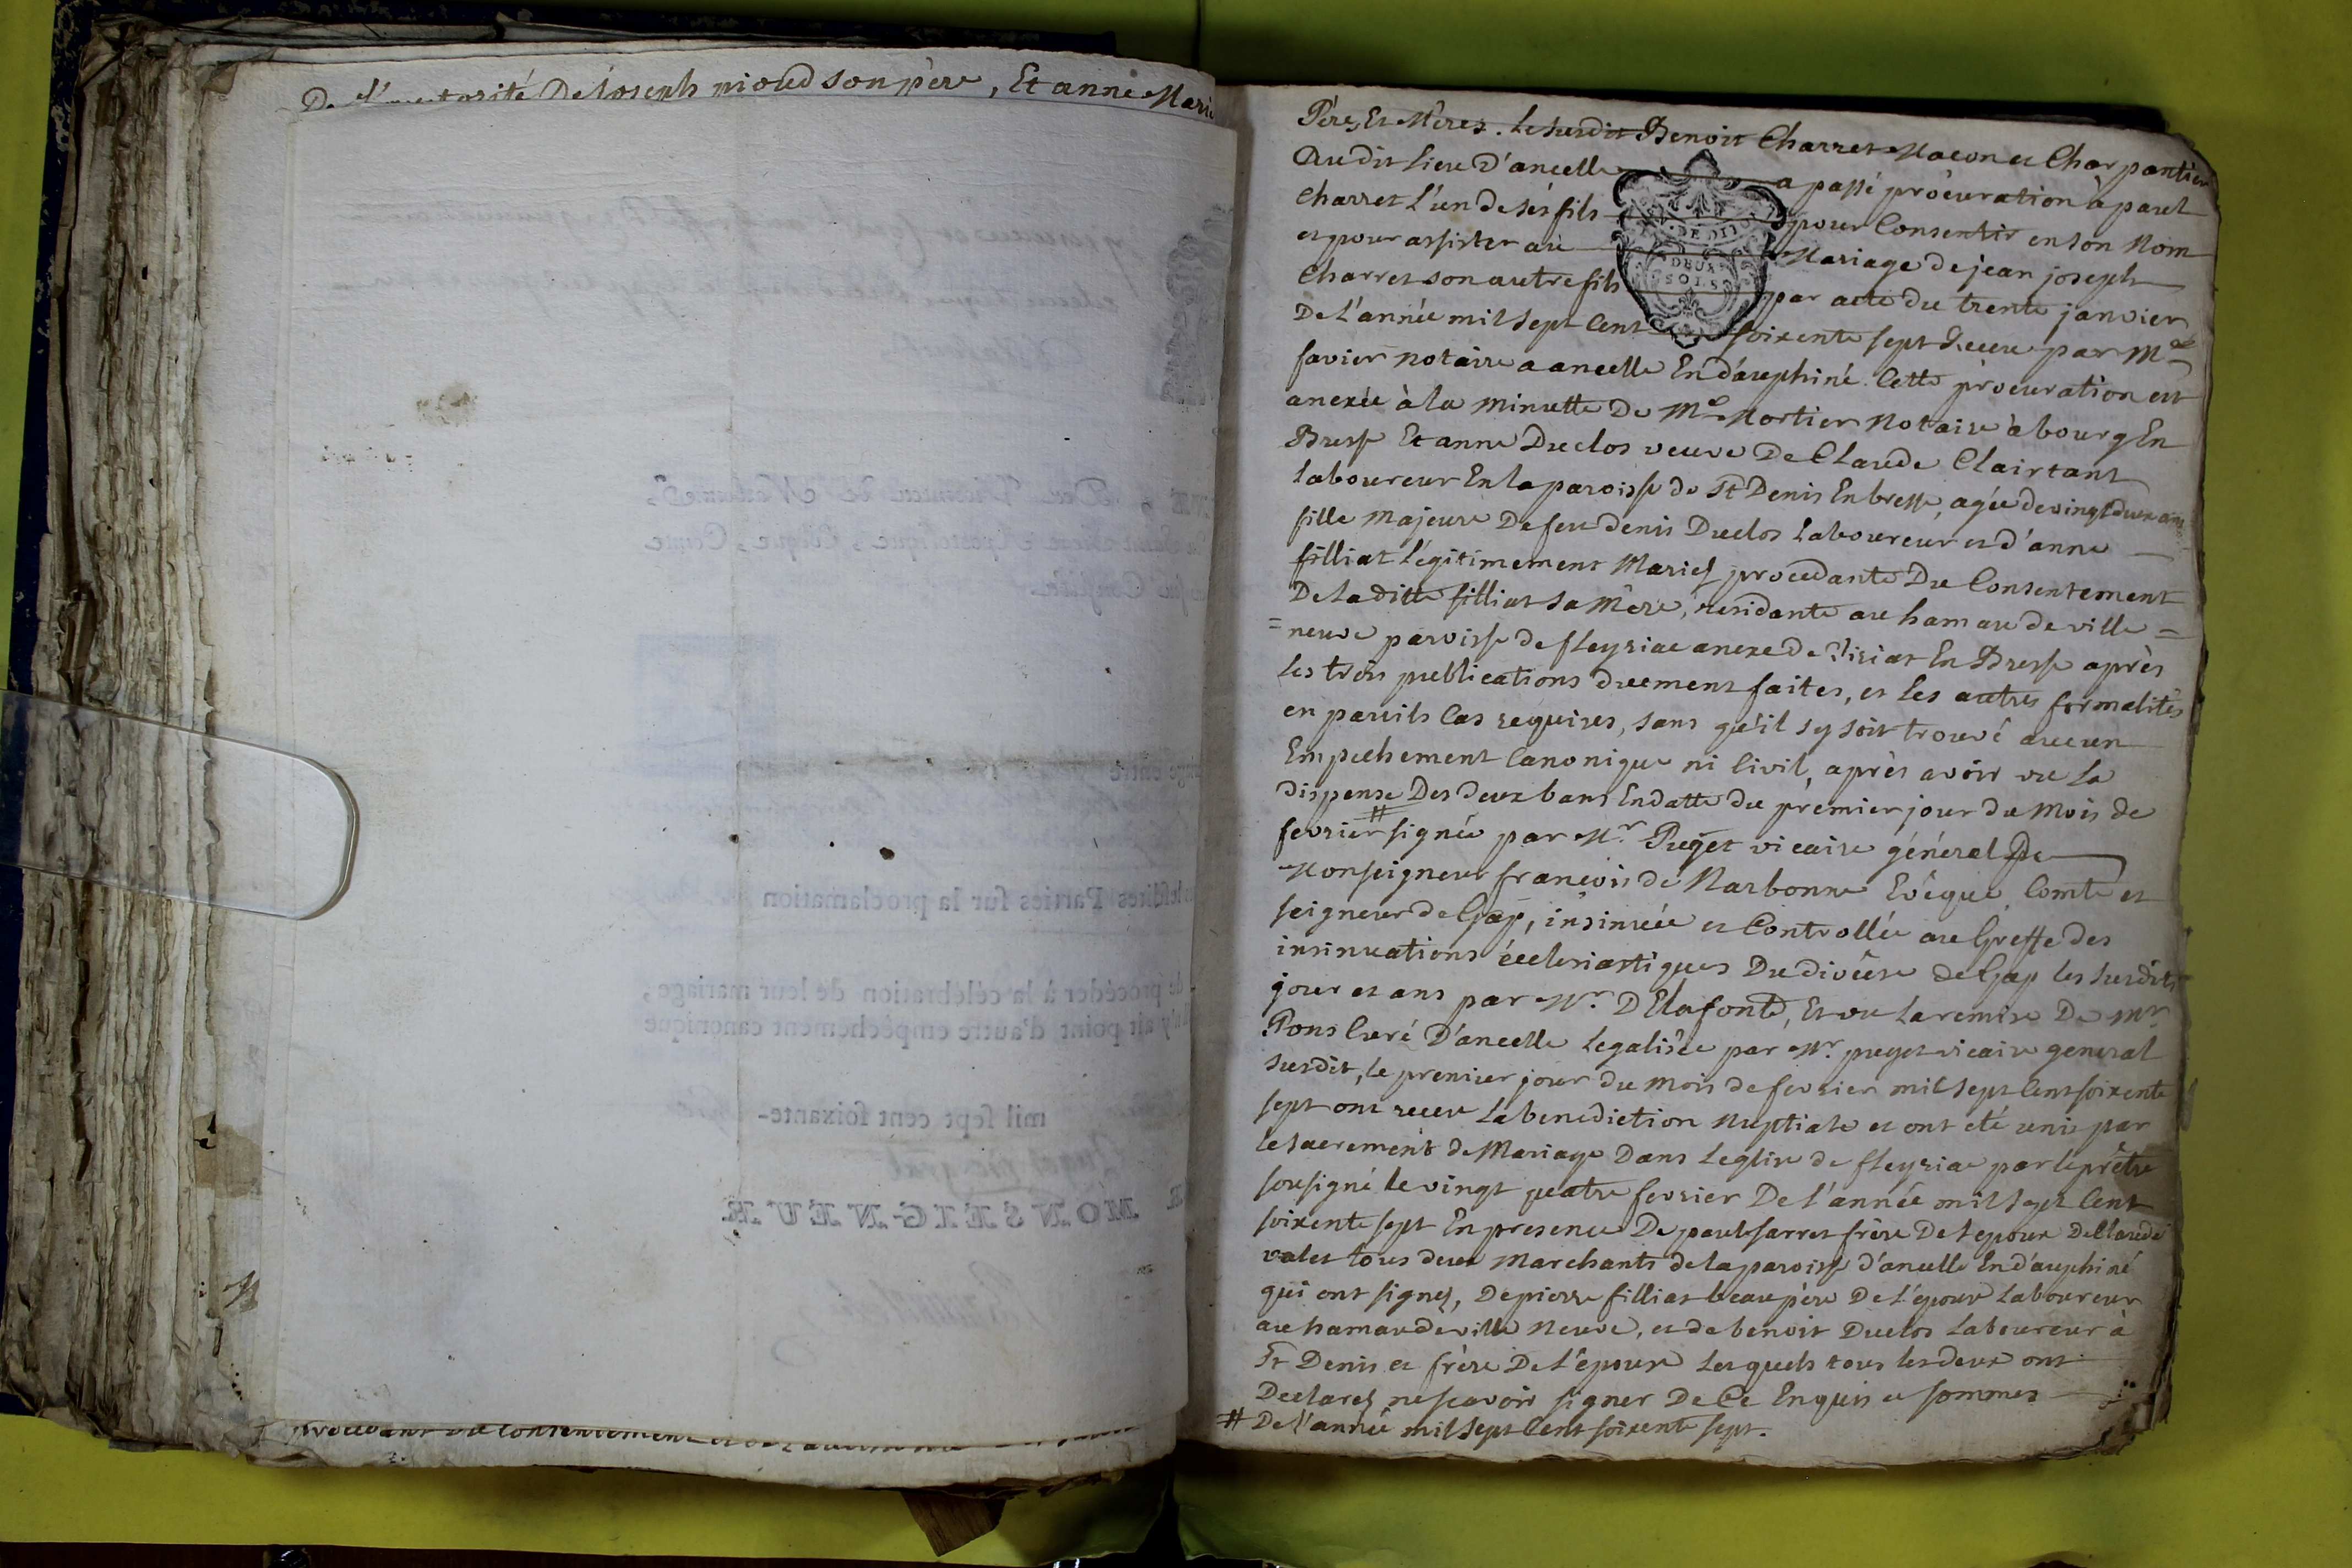 De l'authorité De Joseph pioud son père, Et anne Marie
procedant du consentement
Pères Et Mères. le susdit Benoit Charret Macon et Charpantier
Au dit Lieu D'ancelle a passé procuration à paul
Charret L'un de ses fils pour Consentir en son Nom
et pour assister au Mariage de jean joseph
Charret son autre fils par acte du trente janvier
De L'année mil sept Cent soixente sept Receue par Me
favier notaire a ancelle En dauphiné. Cette procuration est
anexée à la minutte De Me Mortier Notaire à bourg En
Bresse Et anne Duclos veuve De Claude Clairtant
Laboureur En la paroisse de St Denis En bresse, agée de vingt deux ans
fille Majeure De feu denis Duclos Laboureur et d'anne
filliat Légitimement Mariés procedante Du Consentement
De la ditte filliat sa Mère, residante au hamau de ville =
= neuve paroisse de fleyriac anexe de Viriat En Bresse après
les trois publications duement faites, et les autres formalités
en pareils Cas requises, sans qu'il s'y soit trouvé aucun
Empechement Canonique ni Civil, après avoir vu La
dispense Des deux bans En datte du premier jour du Mois de
fevrier # signée par Mr. Puget vicaire général De
Monseigneur françois de Narbonne Evêque, Comte et
seigneur de Gap, insinuée et Controllée au Greffe des
insinuations écclesiastiques Du diocèse de Gap les susdits
jour et ans par Mr. DElafont, Et vu La remise De Mr
Pons Curé D'ancelle Legalisée par Mr. puget vicaire general
susdit, le premier jour du mois de fevrier mil sept Cent soixente
sept ont receu La benediction Nuptiale et ont eté unis par
le sacrement de Mariage Dans Leglise de fleyriac par le prêtre
sousigné le vingt quatre fevrier De l'année mil sept Cent
soixente sept En presence De paul sarret frère De L'epoux De Claude
valet tous deux Marchants de la paroisse d'ancelle En dauphiné
qui ont signés, De pierre filliat beau père De L'épouse Laboureur
au hamau de ville Neuve, et de benoit Duclos Laboureur à
St Denis et frère De L'épouse Lesquels tous les deux ont
Declarés ne scavoir signer De Ce Enquis et sommes
# De l'année mil sept Cent soixente sept.
DE DIJO
DEUX
SOLS